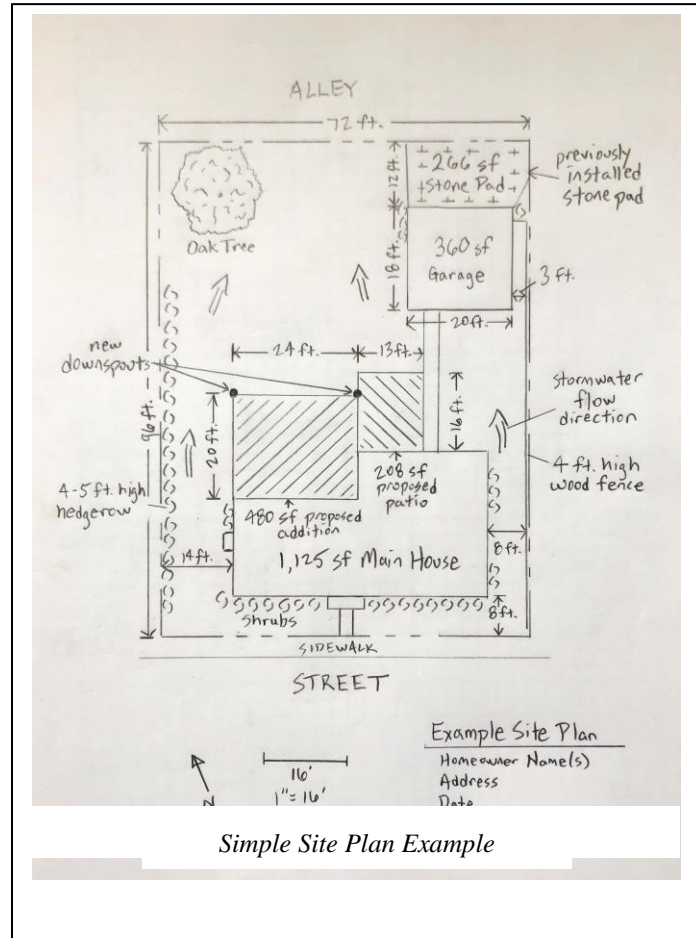 ALLEY
72 ft.
previously
installed
stone pad
12 ft.
266 sf
Stone Pad
Oak Tree
18 ft.
360 sf
Garage
3 ft.
20 ft.
new
downspouts
24 ft.
13 ft.
96 ft.
20 ft.
16 ft.
stormwater
flow
direction
4 ft. high
wood fence
4-5 ft. high
hedgerow
208 sf
proposed
patio
480 sf proposed
addition
14 ft.
1,125 sf Main House
8 ft.
8 ft.
Shrubs
SIDEWALK
STREET
Example Site Plan
Homeowner Name(s)
Address
Date
16'
1" = 16'
Simple Site Plan Example